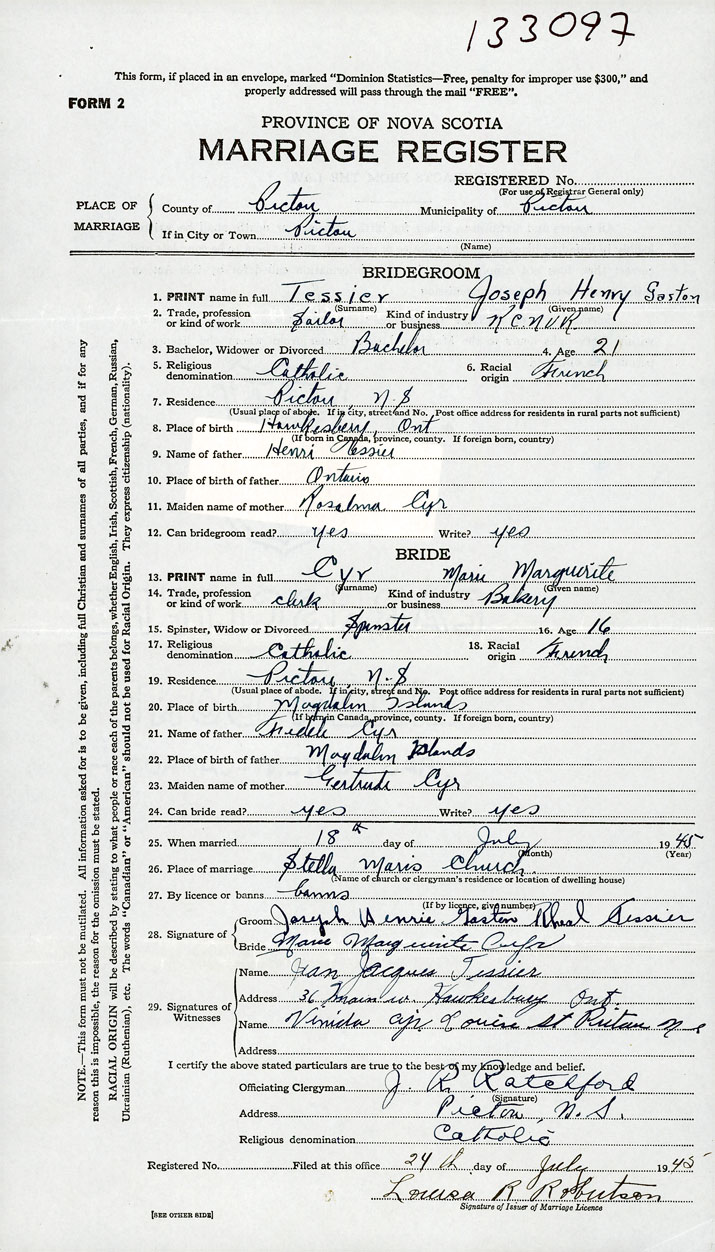 133097
This form, if placed in an envelope, marked "Dominion Statistics—Free, penalty for improper use $300," and
properly addressed will pass through the mail "FREE".
FORM 2
PROVINCE OF NOVA SCOTIA
MARRIAGE REGISTER
REGISTERED No.
(For use of Registrar General only)
PLACE OF MARRIAGE
County of Pictou Municipality of Pictou
If in City or Town Pictou
(Name)
BRIDEGROOM
1. PRINT name in full Tessier Joseph Henry Gaston
(Surname) (Given name)
2. Trade, profession or kind of work Sailor Kind of industry or business R.C.N.V.R.
3. Bachelor, Widower or Divorced Bachelor 4. Age 21
5. Religious denomination Catholic 6. Racial origin French
7. Residence Pictou, N.S
(Usual place of abode. If in city, street and No. Post office address for residents in rural parts not sufficient)
8. Place of birth Hawkesberry, Ont
(If born in Canada, province, county. If foreign born, country)
9. Name of father Henri Tessier
10. Place of birth of father Ontario
11. Maiden name of mother Rosalma Cyr
12. Can bridegroom read? yes Write? yes
BRIDE
13. PRINT name in full Cyr Marie Marguerite
(Surname) (Given name)
14. Trade, profession or kind of work clerk Kind of industry or business Bakery
15. Spinster, Widow or Divorced Spinster 16. Age 16
17. Religious denomination Catholic 18. Racial origin French
19. Residence Pictou, N.S
(Usual place of abode. If in city, street and No. Post office address for residents in rural parts not sufficient)
20. Place of birth Magdalin Islands
(If born in Canada, province, county. If foreign born, country)
21. Name of father Fidele Cyr
22. Place of birth of father Magdalin Islands
23. Maiden name of mother Gertrude Cyr
24. Can bride read? yes Write? yes
25. When married 18th day of July 1945
(Month) (Year)
26. Place of marriage Stella Maris Church
(Name of church or clergyman's residence or location of dwelling house)
27. By licence or banns banns
(If by licence, give number)
28. Signature of
Groom Joseph Henrie Gaston Rheal Tessier
Bride Marie Marguerite Cyr
29. Signatures of Witnesses
Name Jean Jacques Tessier
Address 36 Main W. Hawkesbury Ont.
Name Cyr Louise St Pictou N S
Address
I certify the above stated particulars are true to the best of my knowledge and belief.
Officiating Clergyman J. R.
(Signature)
Address Pictou, N.S.
Religious denomination Catholic
Registered No. Filed at this office 24th day of July 1945
Louisa R Robertson
Signature of Issuer of Marriage Licence
[SEE OTHER SIDE]
NOTE.—This form must not be mutilated. All information asked for is to be given, including full Christian and surnames of all parties, and if for any
reason this is impossible, the reason for the omission must be stated.
RACIAL ORIGIN will be described by stating to what people or race each of the parents belongs, whether English, Irish, Scottish, French, German, Russian,
Ukrainian (Ruthenian), etc. The words "Canadian" or "American" should not be used for Racial Origin. They express citizenship (nationality).